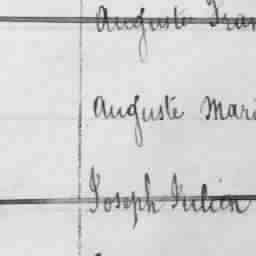 Auguste Fran
Auguste Mari
Joseph Julien